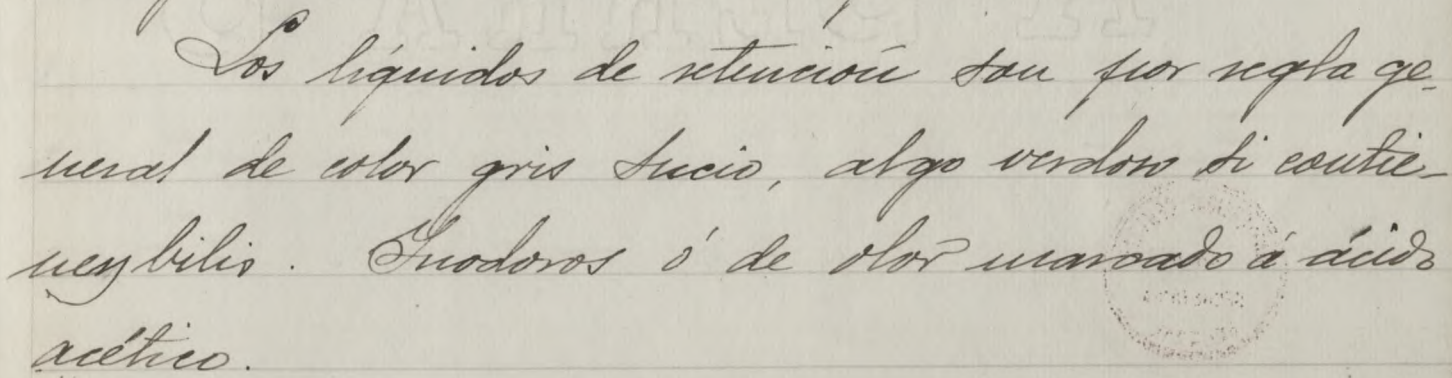 Los líquidos de retención son por regla ge-
neral de color gris sucio, algo verdoso si contie-
nen bilis. Inodoros ó de olor marcado á ácido
acético.